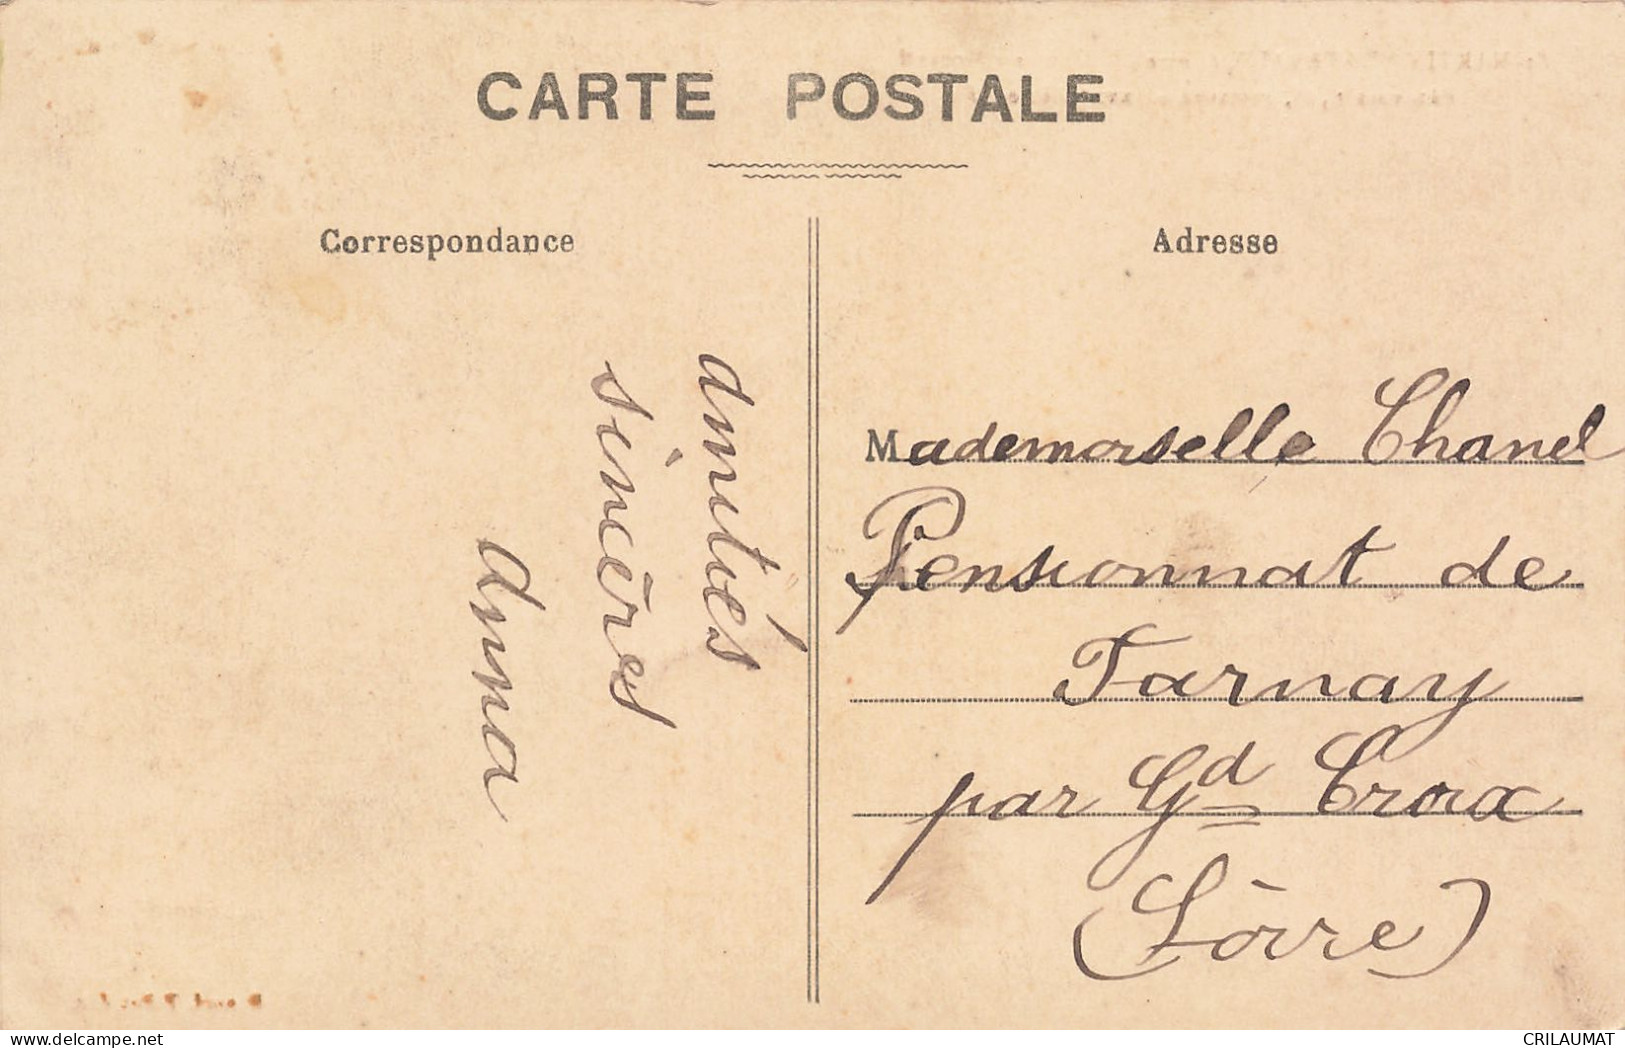 CARTE POSTALE
Correspondance
Adresse
amitiés
sincères
Anna
Mademoiselle Chanel
Pensionnat de
Farnay
par Gd Croix
(Loire)
www.delcampe.net
CRILAUMAT